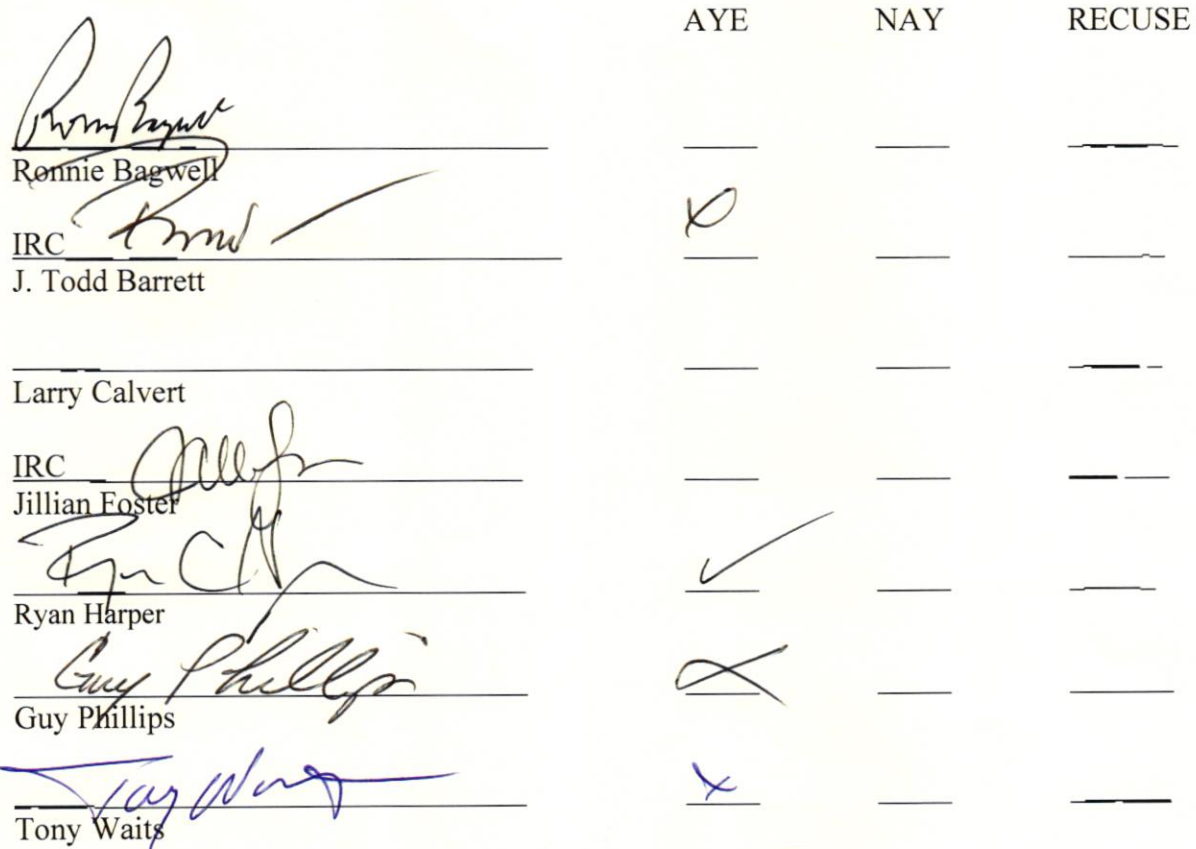 AYE NAY RECUSE
Ronnie Bagwell
IRC
J. Todd Barrett
Larry Calvert
IRC
Jillian Foster
Ryan Harper
Guy Phillips
Guy Phillips
Tony Waits